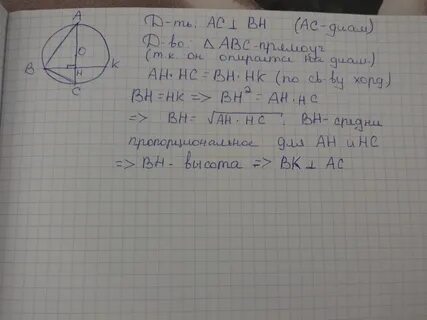 A
O
B
K
H
C
Д-ть: AC ⊥ BH (AC-диам)
Д-во: △ ABC-прямоуг
(т.к. он опирается на диам.)
AH·HC = BH·HK (по св-ву хорд)
BH = HK => BH² = AH·HC
=> BH = √AH·HC. BH-средн
пропорциональное для AH и HC
=> BH- высота => BK ⊥ AC